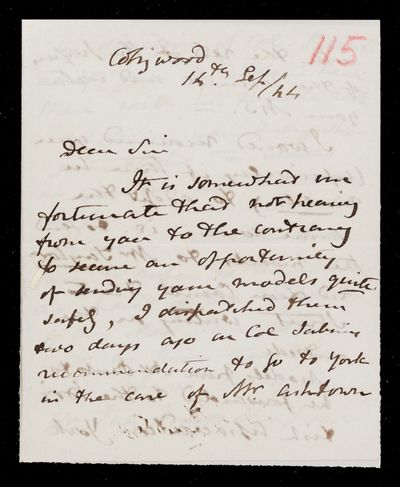 115
Collywood
14th Sep/44
Dear Sir
It is somewhat un
fortunate that not hearing
from you to the contrary
to secure an opportunity
of sending your models quite
safely, I dispatched them
two days ago on Col Sabine's
recommendation to go to York
in the care of Mr